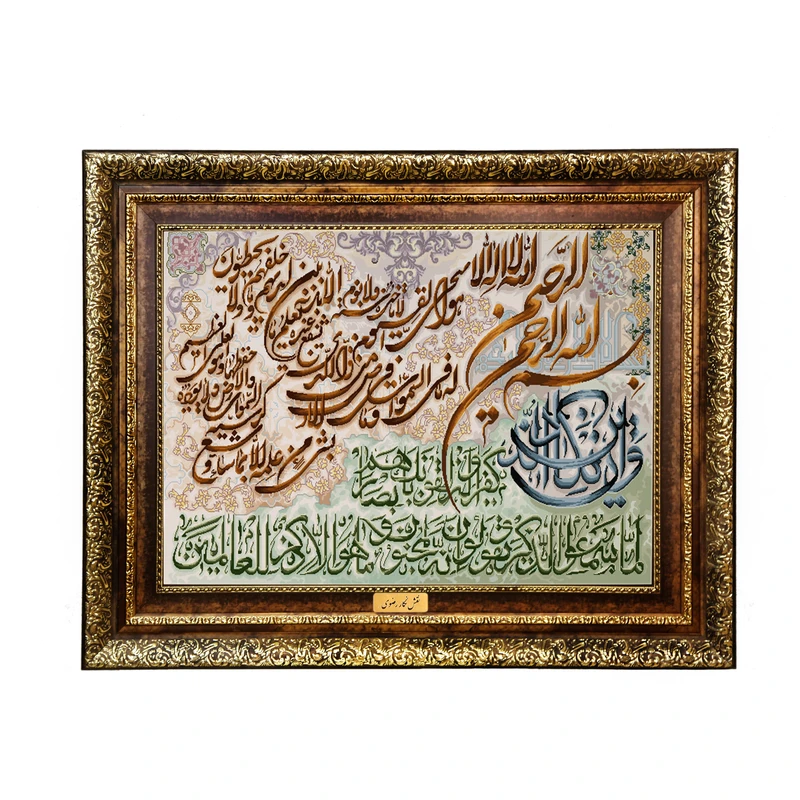 بسم الله الرحمن الرحیم
الله لا اله الا هو الحی القیوم لا تأخذه سنة ولا نوم
له ما فی السموات وما فی الارض من ذا الذی یشفع عنده الا باذنه
یعلم ما بین ایدیهم وما خلفهم ولا یحیطون
بشیء من علمه الا بما شاء وسع
کرسیه السموات والارض ولا یؤده
حفظهما وهو العلی العظیم
وان یکاد الذین
کفروا لیزلقونک بابصارهم
لما سمعوا الذکر ویقولون انه لمجنون وما هو الا ذکر للعالمین
نقش نگار رضوی